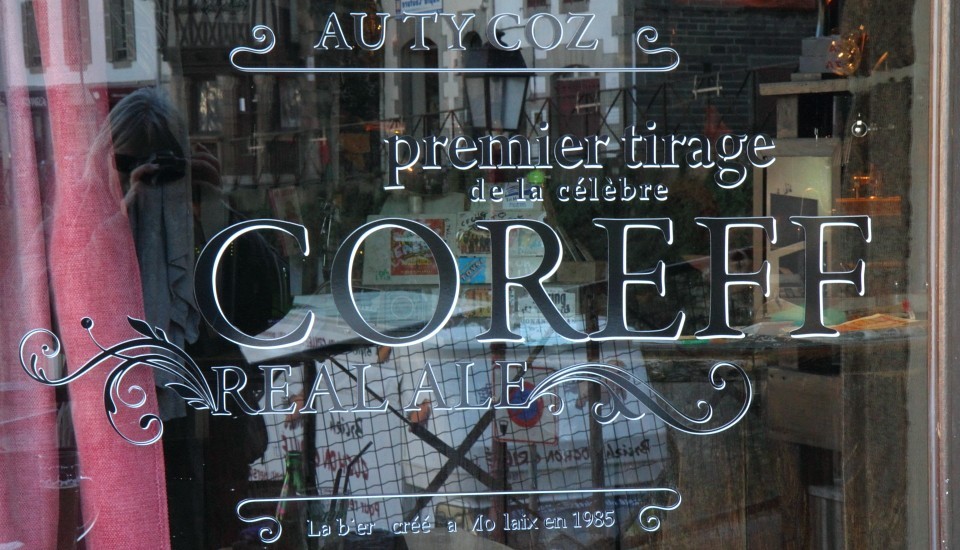 AU TY COZ
premier tirage
de la célèbre
COREFF
REAL ALE
La b er créé a laix en 1985